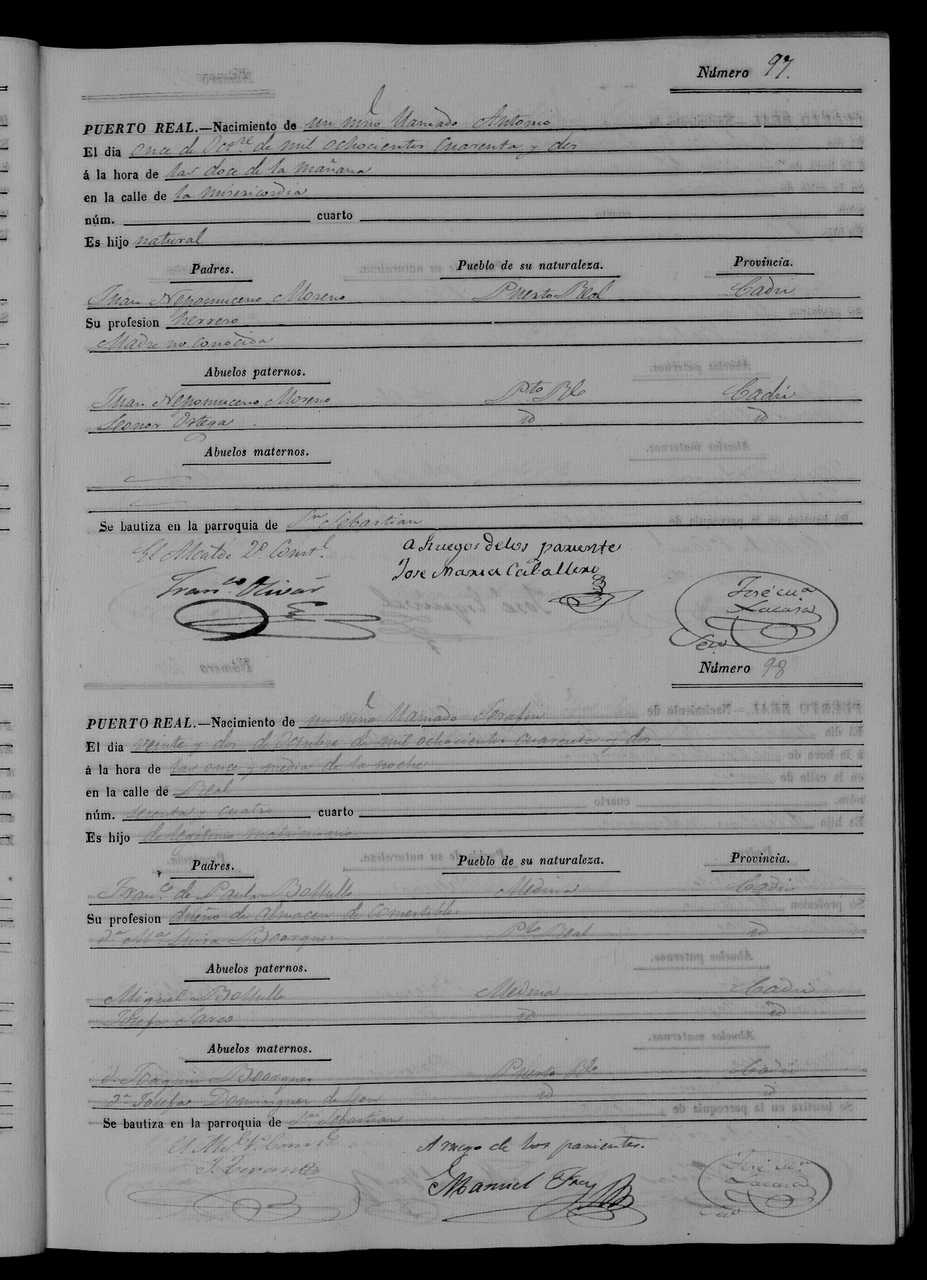 Número 97.
PUERTO REAL.—Nacimiento de un niño llamado Antonio
El dia once de Octre de mil ochocientos cuarenta y dos
á la hora de las doce de la mañana
en la calle de la misericordia
núm. cuarto
Es hijo natural
Padres. Pueblo de su naturaleza. Provincia.
Juan Nepomuceno Moreno Puerto Real Cadiz
Su profesion herrero
Madre no conocida
Abuelos paternos.
Juan Nepomuceno Moreno Pto Rl Cadiz
Leonor Ortega id id
Abuelos maternos.
Se bautiza en la parroquia de Sn Sebastian
El Alcalde 2º Constl. A Ruegos de los pariente
Franco Olivár Jose Maria Caballero
José
Lacasa
Srio
Número 98
PUERTO REAL.—Nacimiento de un niño llamado Serafin
El dia veinte y dos de Octubre de mil ochocientos cuarenta y dos
á la hora de las once y media de la noche
en la calle de Real
núm. setenta y cuatro cuarto
Es hijo de legitimo matrimonio
Padres. Pueblo de su naturaleza. Provincia.
Franco de Paula Medina Cadiz
Su profesion dueño de almacen de comestibles
Da Ma Pto Real id
Abuelos paternos.
Miguel Medina Cadiz
Josefa id id
Abuelos maternos.
Dn Joaquin Puerto Rl Cadiz
Da Josefa Dominguez de Leon id id
Se bautiza en la parroquia de Sn Sebastian
A ruego de los parientes.
Manuel
José
Lacasa
Srio